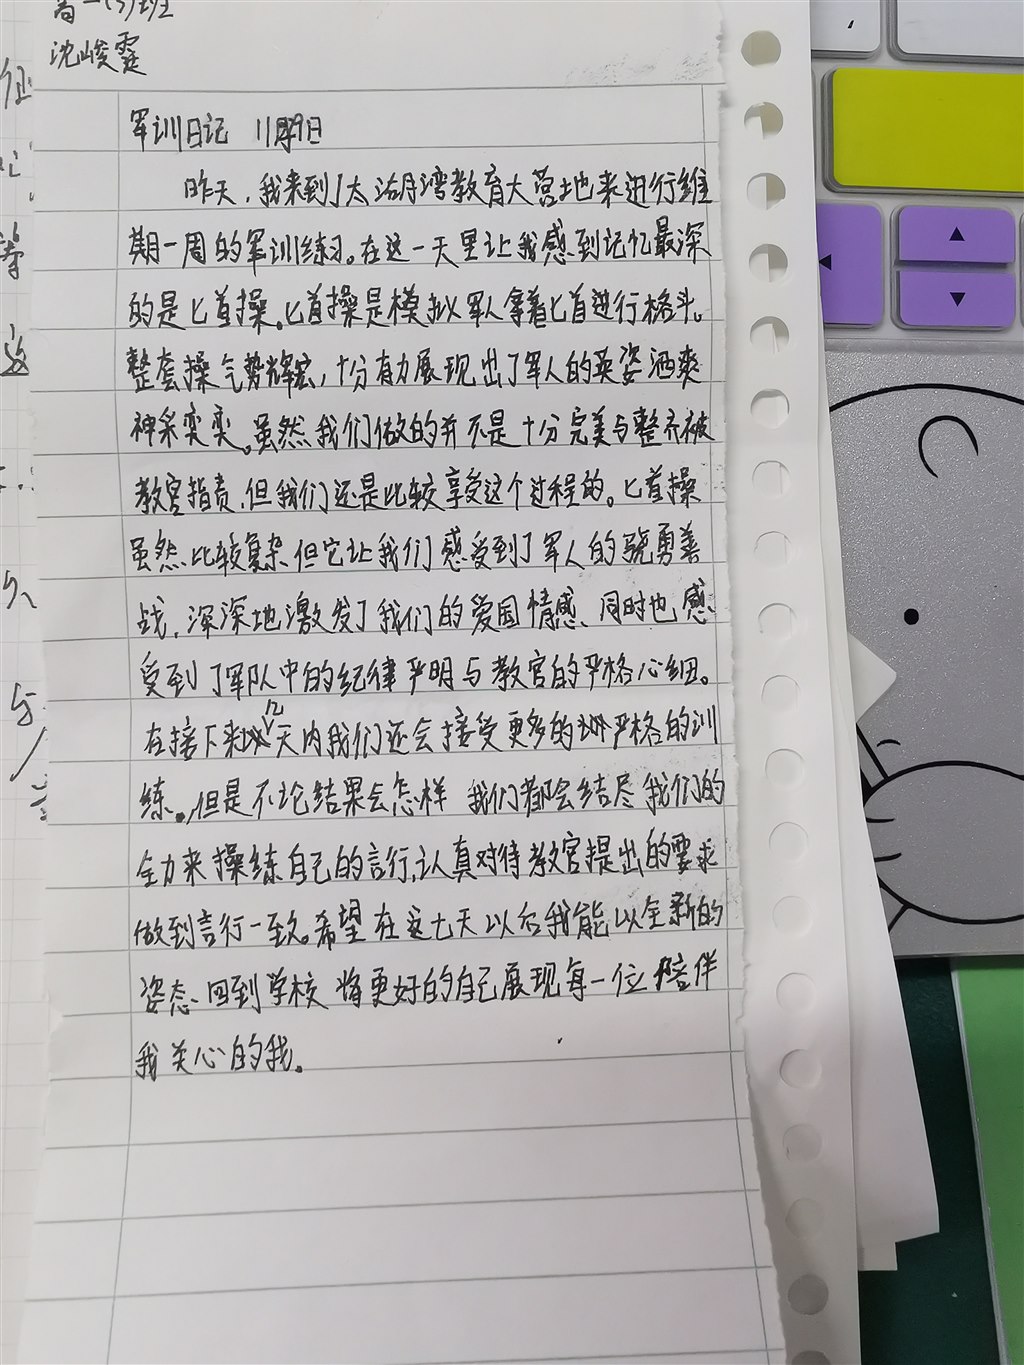 高一(3)班
沈峻霆
军训日记 11月9日
昨天,我来到了太湖湾教育大营地来进行维
期一周的军训练习。在这一天里让我感到记忆最深
的是匕首操。匕首操是模拟军人拿着匕首进行格斗。
整套操气势辉宏,十分有力展现出了军人的英姿洒爽
神采奕奕。虽然我们做的并不是十分完美与整齐被
教官指责,但我们还是比较享受这个过程的。匕首操
虽然比较复杂,但它让我们感受到了军人的骁勇善
战,深深地激发了我们的爱国情感、同时也感
受到了军队中的纪律严明与教官的严格心细。
在接下来几天内我们还会接受更多的严格的训
练。但是不论结果会怎样 我们都会结尽我们的
全力来操练自己的言行,认真对待教官提出的需求
做到言行一致。希望在这七天以后我能以全新的
姿态回到学校 将更好的自己展现每一位陪伴
我关心的我。